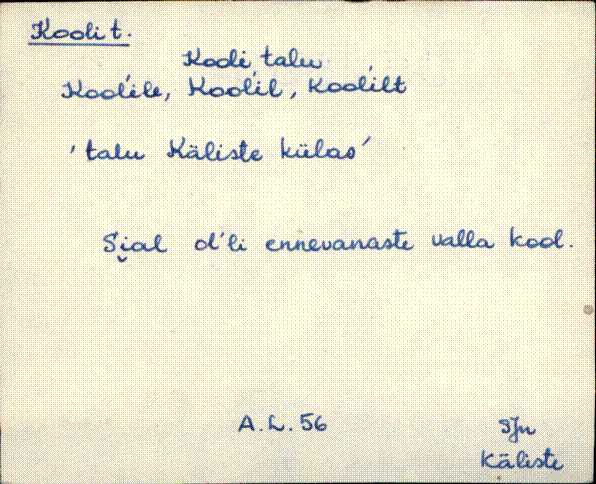 Kooli t.
Kooli talu
Kool'ile, Kool'il, Kool'ilt
'talu Käliste külas'
Si̮al ol'li ennevanaste valla kool.
A. L. 56
SJn
Käliste